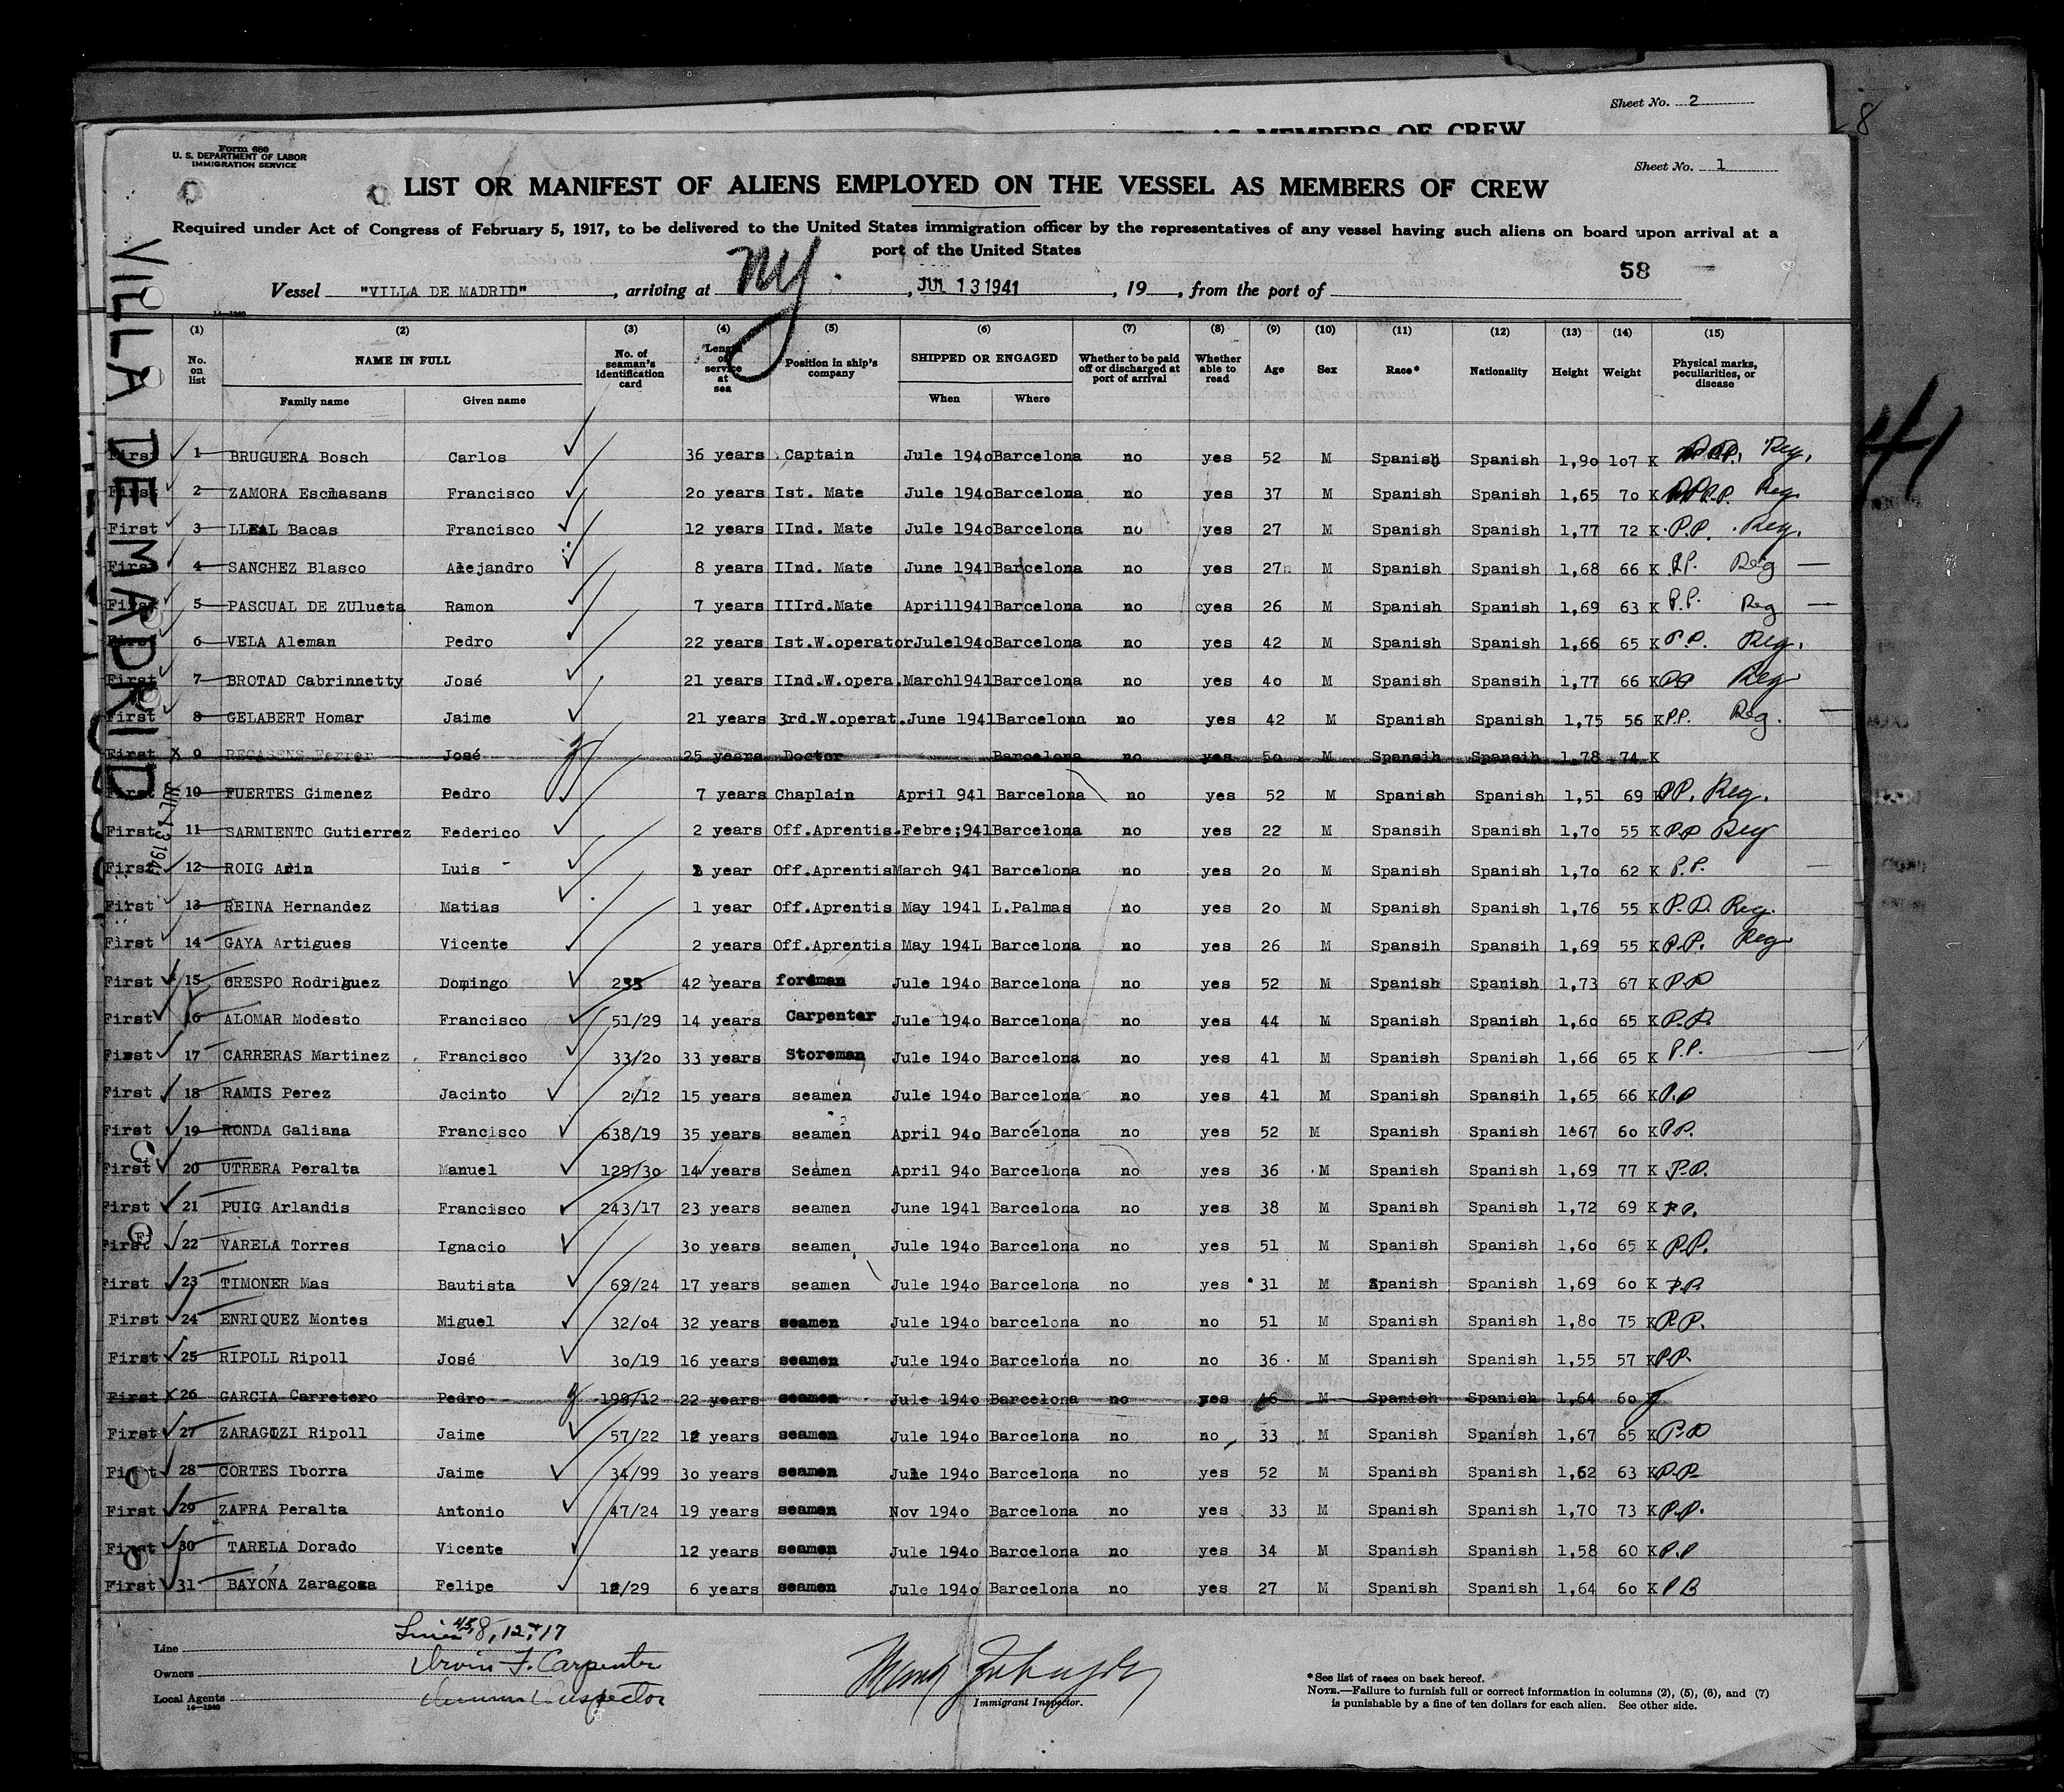 Sheet No. 2
AS MEMBERS OF CREW
8
Form 680
U. S. DEPARTMENT OF LABOR
IMMIGRATION SERVICE
Sheet No. 1
LIST OR MANIFEST OF ALIENS EMPLOYED ON THE VESSEL AS MEMBERS OF CREW
Required under Act of Congress of February 5, 1917, to be delivered to the United States immigration officer by the representatives of any vessel having such aliens on board upon arrival at a
port of the United States
58
Vessel "VILLA DE MADRID", arriving at NY., JUL 13 1941, 19, from the port of
VILLA DE MADRID
JUL 13 194
14-1240
(1) (2) (3) (4) (5) (6) (7) (8) (9) (10) (11) (12) (13) (14) (15)
No. on list NAME IN FULL No. of seaman's identification card Length of service at sea Position in ship's company SHIPPED OR ENGAGED Whether to be paid off or discharged at port of arrival Whether able to read Age Sex Race* Nationality Height Weight Physical marks, peculiarities, or disease
Family name Given name When Where
First 1 BRUGUERA Bosch Carlos 36 years Captain Jule 1940 Barcelona no yes 52 M Spanish Spanish 1,90 107 K P.P. Reg.
First 2 ZAMORA Eschasans Francisco 20 years Ist. Mate Jule 1940 Barcelona no yes 37 M Spanish Spanish 1,65 70 K P.P. Reg.
First 3 LLEAL Bacas Francisco 12 years IInd. Mate Jule 1940 Barcelona no yes 27 M Spanish Spanish 1,77 72 K P.P. Reg.
First 4 SANCHEZ Blasco Alejandro 8 years IInd. Mate June 1941 Barcelona no yes 27 M Spanish Spanish 1,68 66 K P.P. Reg —
First 5 PASCUAL DE ZUlueta Ramon 7 years IIIrd.Mate April1941 Barcelona no cyes 26 M Spanish Spanish 1,69 63 K P.P. Reg —
First 6 VELA Aleman Pedro 22 years Ist.W.operator Jule1940 Barcelona no yes 42 M Spanish Spanish 1,66 65 K P.P. Reg.
First 7 BROTAD Cabrinnetty José 21 years IInd.W.opera. March1941 Barcelona no yes 40 M Spanish Spansih 1,77 66 K PP Reg
First 8 GELABERT Homar Jaime 21 years 3rd.W.operat. June 1941 Barcelona no yes 42 M Spanish Spanish 1,75 56 K P.P. Reg. —
First X 9 REGASENS Ferrer José 25 years Doctor Barcelona no yes 50 M Spansih Spansih 1,78 74 K
First 10 FUERTES Gimenez Pedro 7 years Chaplain April 941 Barcelona no yes 52 M Spanish Spanish 1,51 69 K PP. Reg.
First 11 SARMIENTO Gutierrez Federico 2 years Off.Aprentis. Febre;941 Barcelona no yes 22 M Spansih Spanish 1,70 55 K PP Reg
First 12 ROIG Arin Luis year Off.Aprentis March 941 Barcelona no yes 20 M Spanish Spanish 1,70 62 K P.P. —
First 13 REINA Hernandez Matias 1 year Off.Aprentis May 1941 L.Palmas no yes 20 M Spanish Spanish 1,76 55 K P.P. Reg.
First 14 GAYA Artigues Vicente 2 years Off.Aprentis May 194L Barcelona no yes 26 M Spansih Spansih 1,69 55 K P.P. Reg
First 15 CRESPO Rodriguez Domingo 42 years Jule 1940 Barcelona no yes 52 M Spanish Spanish 1,73 67 K P.P
First 16 ALOMAR Modesto Francisco 51/29 14 years Carpenter Jule 1940 Barcelona no yes 44 M Spanish Spanish 1,60 65 K P.P.
First 17 CARRERAS Martinez Francisco 33/20 33 years Storeman Jule 1940 Barcelona no yes 41 M Spanish Spanish 1,66 65 K P.P. —
First 18 RAMIS Perez Jacinto 2/12 15 years seamen Jule 1940 Barcelona no yes 41 M Spanish Spansih 1,65 66 K P.P
First 19 RONDA Galiana Francisco 638/19 35 years seamen April 940 Barcelona no yes 52 M Spanish Spanish 1,67 60 K P.P.
First 20 UTRERA Peralta Manuel 129/30 14 years Seamen April 940 Barcelona no yes 36 M Spanish Spanish 1,69 77 K P.P.
First 21 PUIG Arlandis Francisco 243/17 23 years seamen June 1941 Barcelona no yes 38 M Spanish Spanish 1,72 69 K P.P.
First 22 VARELA Torres Ignacio 30 years seamen Jule 1940 Barcelona no yes 51 M Spanish Spanish 1,60 65 K P.P.
First 23 TIMONER Mas Bautista 69/24 17 years seamen Jule 1940 Barcelona no yes 31 M Spanish Spanish 1,69 60 K P.P
First 24 ENRIQUEZ Montes Miguel 32/04 32 years seamen Jule 1940 barcelona no no 51 M Spanish Spanish 1,80 75 K P.P.
First 25 RIPOLL Ripoll José 30/19 16 years seamen Jule 1940 Barcelona no no 36 M Spanish Spanish 1,55 57 K P.P.
First X 26 GARCIA Carretero Pedro 198/12 22 years seamen Jule 1940 Barcelona no yes 46 M Spanish Spanish 1,64 60
First 27 ZARAGOZI Ripoll Jaime 57/22 12 years seamen Jule 1940 Barcelona no no 33 M Spanish Spanish 1,67 65 K P.P
First 28 CORTES Iborra Jaime 34/99 30 years seamen Jule 1940 Barcelona no yes 52 M Spanish Spanish 1,62 63 K P.P
First 29 ZAFRA Peralta Antonio 47/24 19 years seamen Nov 1940 Barcelona no yes 33 M Spanish Spanish 1,70 73 K P.P.
First 30 TARELA Dorado Vicente 12 years seamen Jule 1940 Barcelona no yes 34 M Spanish Spanish 1,58 60 K P.P
First 31 BAYONA Zaragoza Felipe 12/29 6 years seamen Jule 1940 Barcelona no yes 27 M Spanish Spanish 1,64 60 K P.P
Lines 4,5, 8, 12, + 17
Line
Irvin F. Carpenter
Owners
Inspector
Local Agents
14-1240
Immigrant Inspector.
*See list of races on back hereof.
NOTE.—Failure to furnish full or correct information in columns (2), (5), (6), and (7)
is punishable by a fine of ten dollars for each alien. See other side.